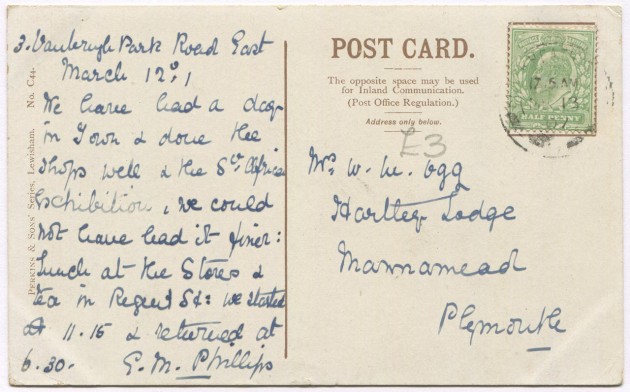 3. Vanbrugh Park Road East
March 12th
We have had a day
in Town & done the
shops well & the Sth African
Exhibition, we could
not have had it finer:
Lunch at the Stores &
tea in Regent St: we started
at 11.15 & returned at
6.30. E. M. Phillips
PERKINS & SONS' Series, Lewisham. No. C44.
POST CARD.
The opposite space may be used
for Inland Communication.
(Post Office Regulation.)
Address only below.
£3
Mrs W. M. Ogg
Hartley Lodge
Mannamead
Plymouth
HALF PENNY
13
07